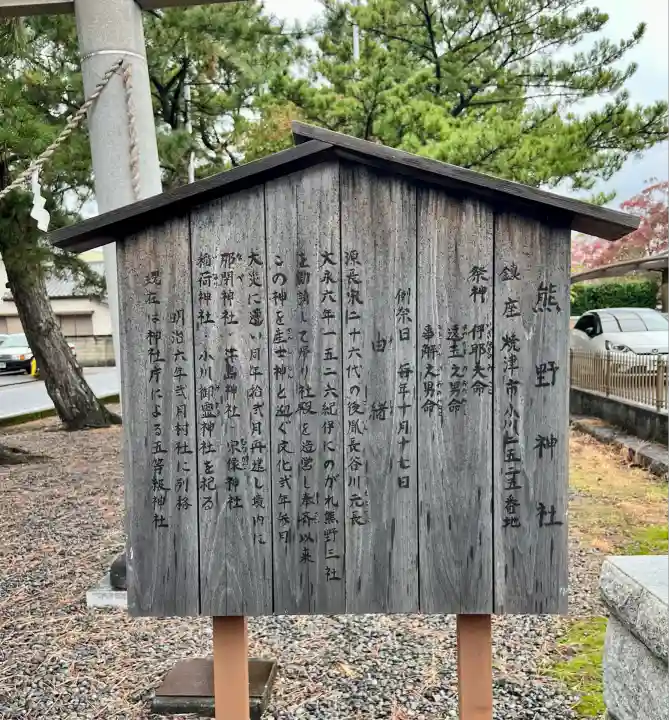 熊野神社
鎮座 焼津市小川二五二五番地
祭神 伊耶夫命
速玉之男命
事解之男命
例祭日 毎年十月十七日
由緒
源長家二十六代の後胤長谷川元長
大永六年一五二六紀伊にのがれ熊野三社
を勧請して帰り社殿を造営し奉斎以来
この神を産土神と迎ぐ文化弐年参月
大災に遭い同年拾弐月再建し境内に
那閉神社・津島神社・宗像神社
稲荷神社・小川御霊神社を祀る
明治六年弐月村社に列格
現在は神社庁による五等級神社